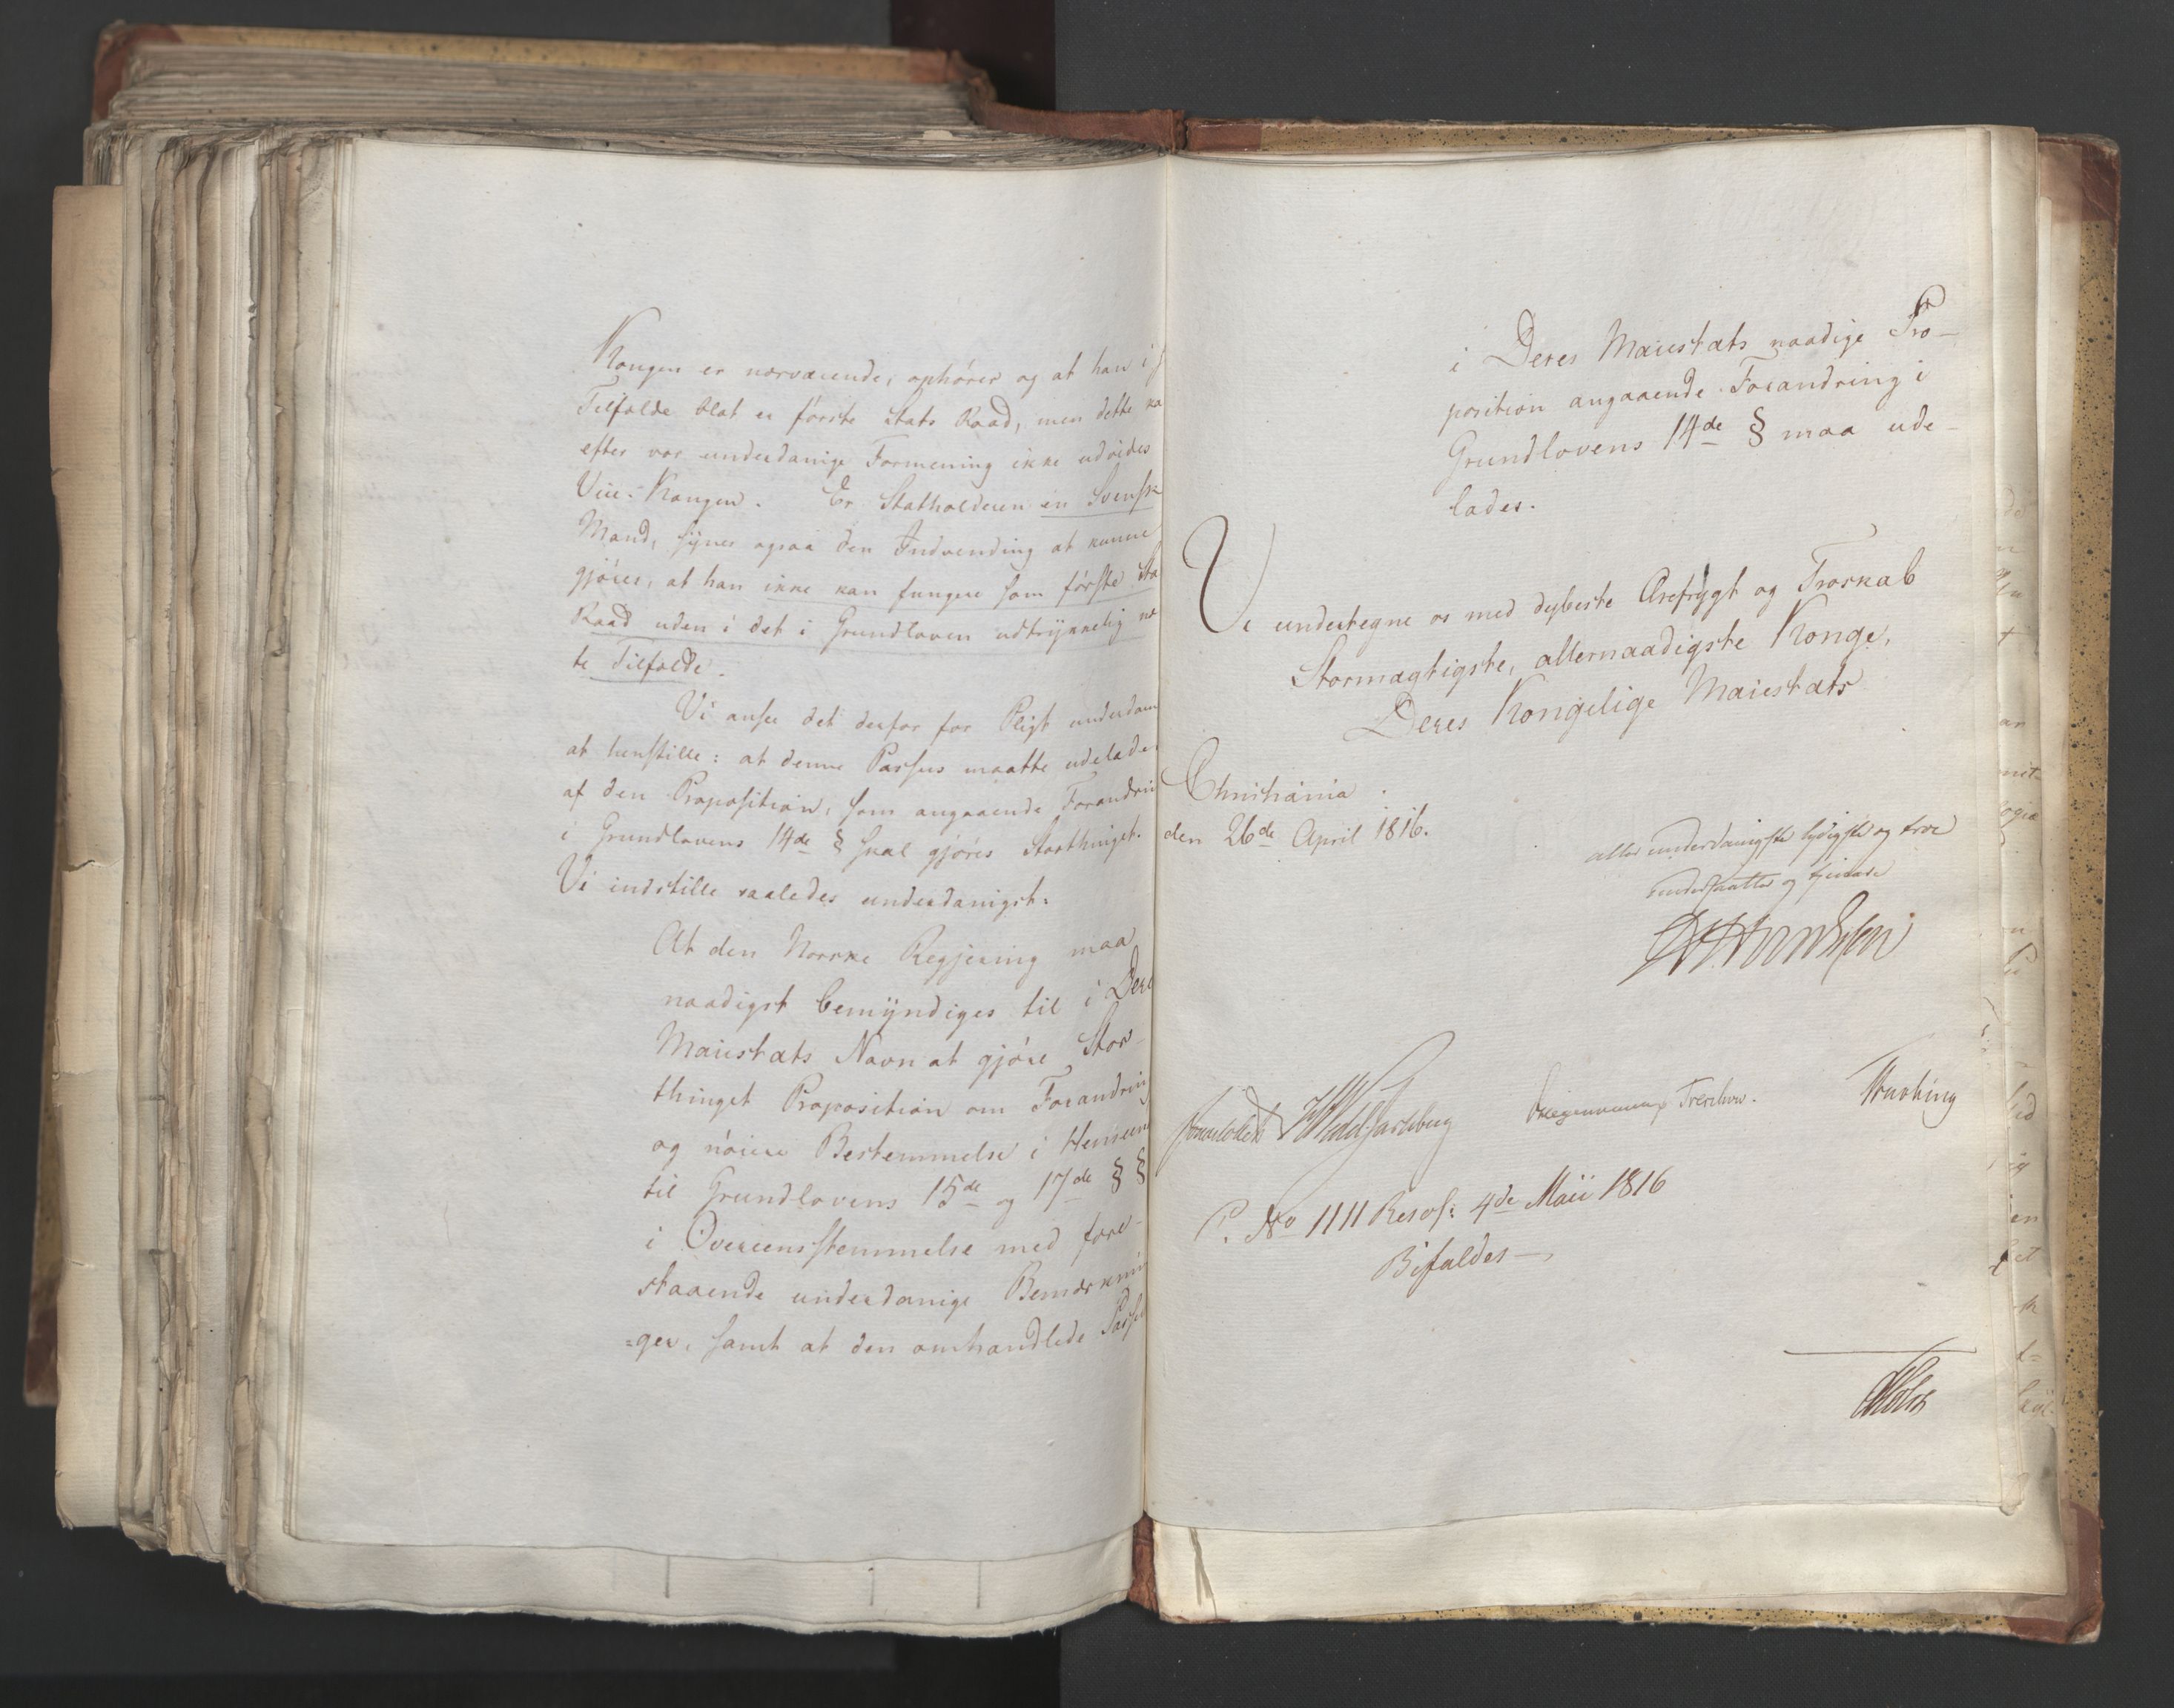 Kongen er nærværende, ophører og at han i
Tilfælde blot er første Stats Raad, men dette ka
efter vor underdanige Formening ikke udvides
Vice-Kongen. Er Statholderen en Svensk
Mand, synes ogsaa den Indvending at kunne
gjøres, at han ikke kan fungere som første Sta
Raad uden i det i Grundloven udtrykkelig næ
te Tilfælde.
Vi ansee det derfor for Pligt underdan
at henstille: at denne Passus maatte udelade
af den Proposition, som angaaende Forandrin
i Grundlovens 14de § skal gjøres Storthinget.
Vi indstille saaledes underdanigst:
At den Norske Regjering maa
naadigst bemyndiges til i Dere
Maiestæts Navn at gjøre Stor-
thinget Proposition om Forandrin
og nøiere Bestemmelse i Henseen
til Grundlovens 15de og 17de § §
i Overeensstemmelse med fore-
staaende underdanige Bemærknin
=ger, samt at den omhandlede Passu
i Deres Maiestæts naadige Pro-
position angaaende Forandring i
Grundlovens 14de § maa ude-
lades.
Vi undertegne os med dybeste Ærefrygt og Troskab
Stormægtigste, allernaadigste Konge,
Deres Kongelige Maiestæts
Christiania
den 26de April 1816.
allerunderdanigste lydigste og troe
undersaatter og tjenere
Sommerfeldt HWedel Jarlsberg Treschow. Krohg
P. No 1111 Resol: 4de Maii 1816
Bifaldes —,
Holst